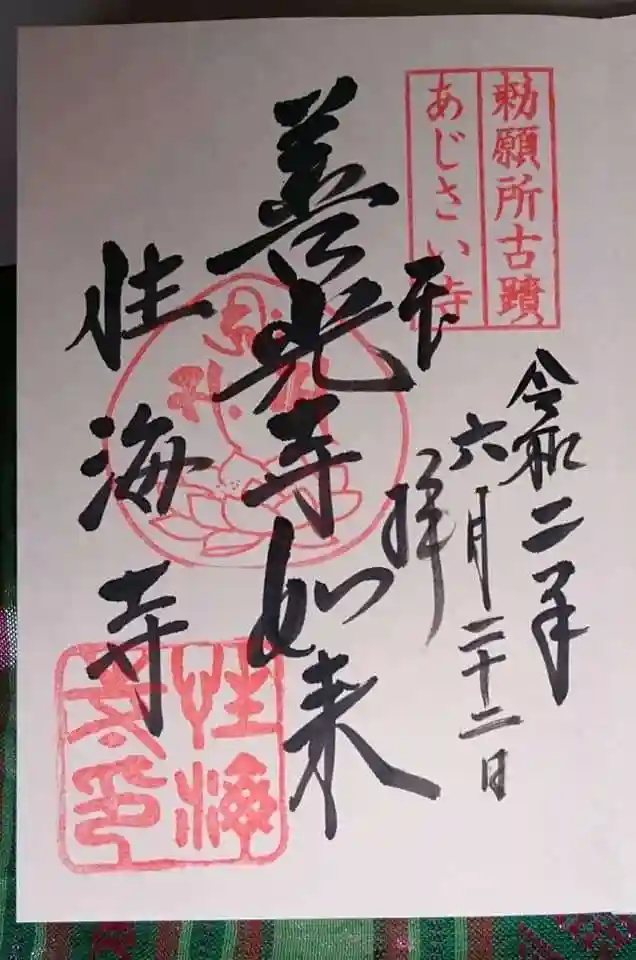 勅願所古蹟
あじさい寺
令和二年
六月二十二日
奉拝
善光寺如来
性海寺
性海
寺印